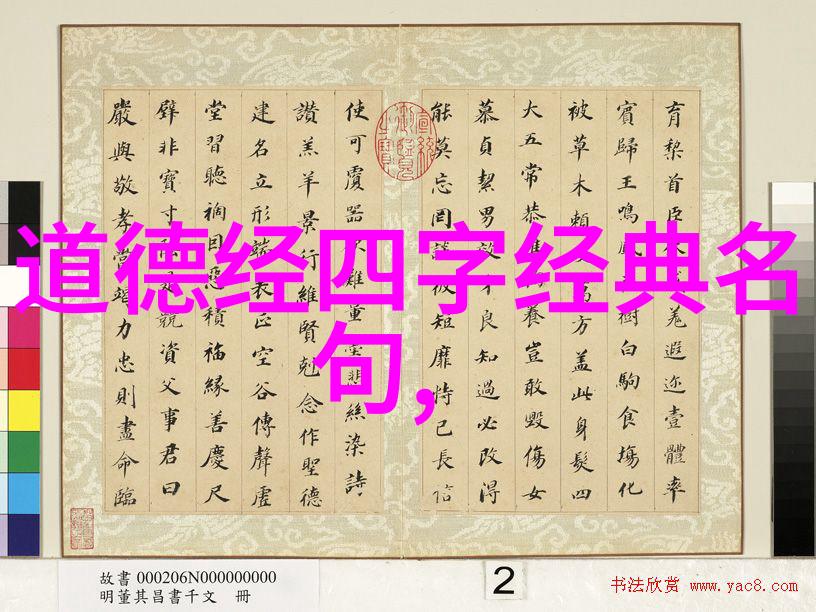 道德经四字经典名
句,
育棃首臣伏戎羌遐迩壹體率
賓歸王鳴鳳在樹白駒食場化
被草木賴及萬方盖此身髮四
大五常恭惟鞠養豈敢毀傷女
慕貞絜男效才良知過必改得
能莫忘罔談彼短靡恃己長信
使可覆器欲難量墨悲絲染詩
讚羔羊景行維賢剋念作聖德
建名立形端表正空谷傳聲虛
堂習聽禍因惡積福緣善慶尺
璧非寶寸陰是競資父事君曰
嚴與敬孝當竭力忠則盡命臨
故書 000206N000000000
明董其昌書千文 冊
2
书法欣赏 www.yac8.com